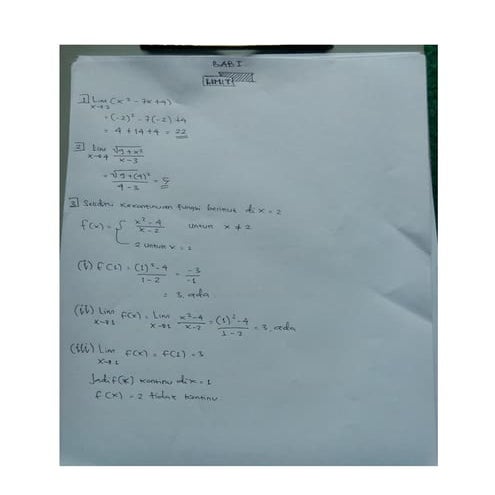 BAB I
LIMIT
1 Lim (x² - 7x + 4)
x→-2
= (-2)² - 7(-2) + 4
= 4 + 14 + 4 = 22
2 Lim √9+x²
x→4 x-3
= √9+(4)² = 5
4-3
3 Selidiki kekontinuan fungsi berikut di x = 2
f(x) = { x²-4 / x-2 untuk x ≠ 2
2 untuk x = 2
(i) f(1) = (1)²-4 / 1-2 = -3 / -1
= 3, ada
(ii) Lim f(x) = Lim x²-4 / x-2 = (1)²-4 / 1-2 = 3, ada
x→1 x→1
(iii) Lim f(x) = f(1) = 3
x→1
Jadi f(x) kontinu di x = 1
f(x) = 2 tidak kontinu